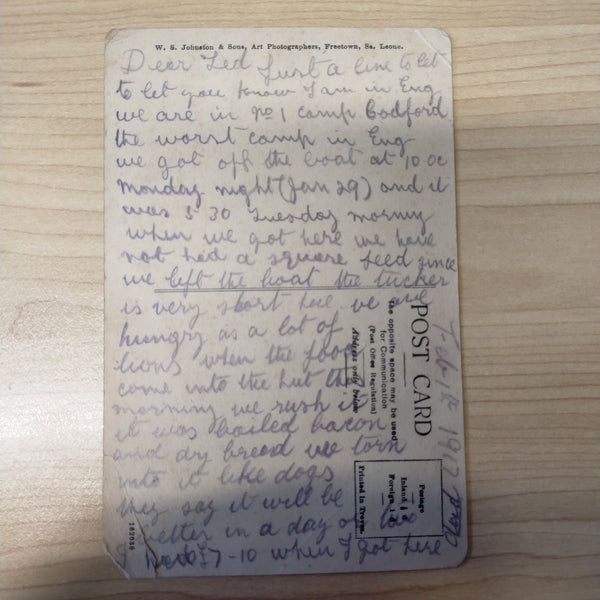 W. S. Johnston & Sons, Art Photographers, Freetown, Sa. Leone.
Dear Ted Just a line to let
to let you know I am in Eng
we are in No 1 camp Codford
the worst camp in Eng
we got off the boat at 10 oc
Monday night (Jan 29) and it
was 5 30 Tuesday morning
when we got here we have
not had a square feed since
we left the boat the tucker
is very short here we are
hungry as a lot of
lions when the food
come into the hut this
morning we rush it
it was boiled bacon
and dry bread we torn
into it like dogs
they say it will be
better in a day or two
I had 7-10 when I got here
POST CARD
The opposite space may be used
for Communication
(Post Office Regulation)
Address only below
Postage
Inland ½d
Foreign 1d
Printed in Treves.
Feb 1st 1917
162636